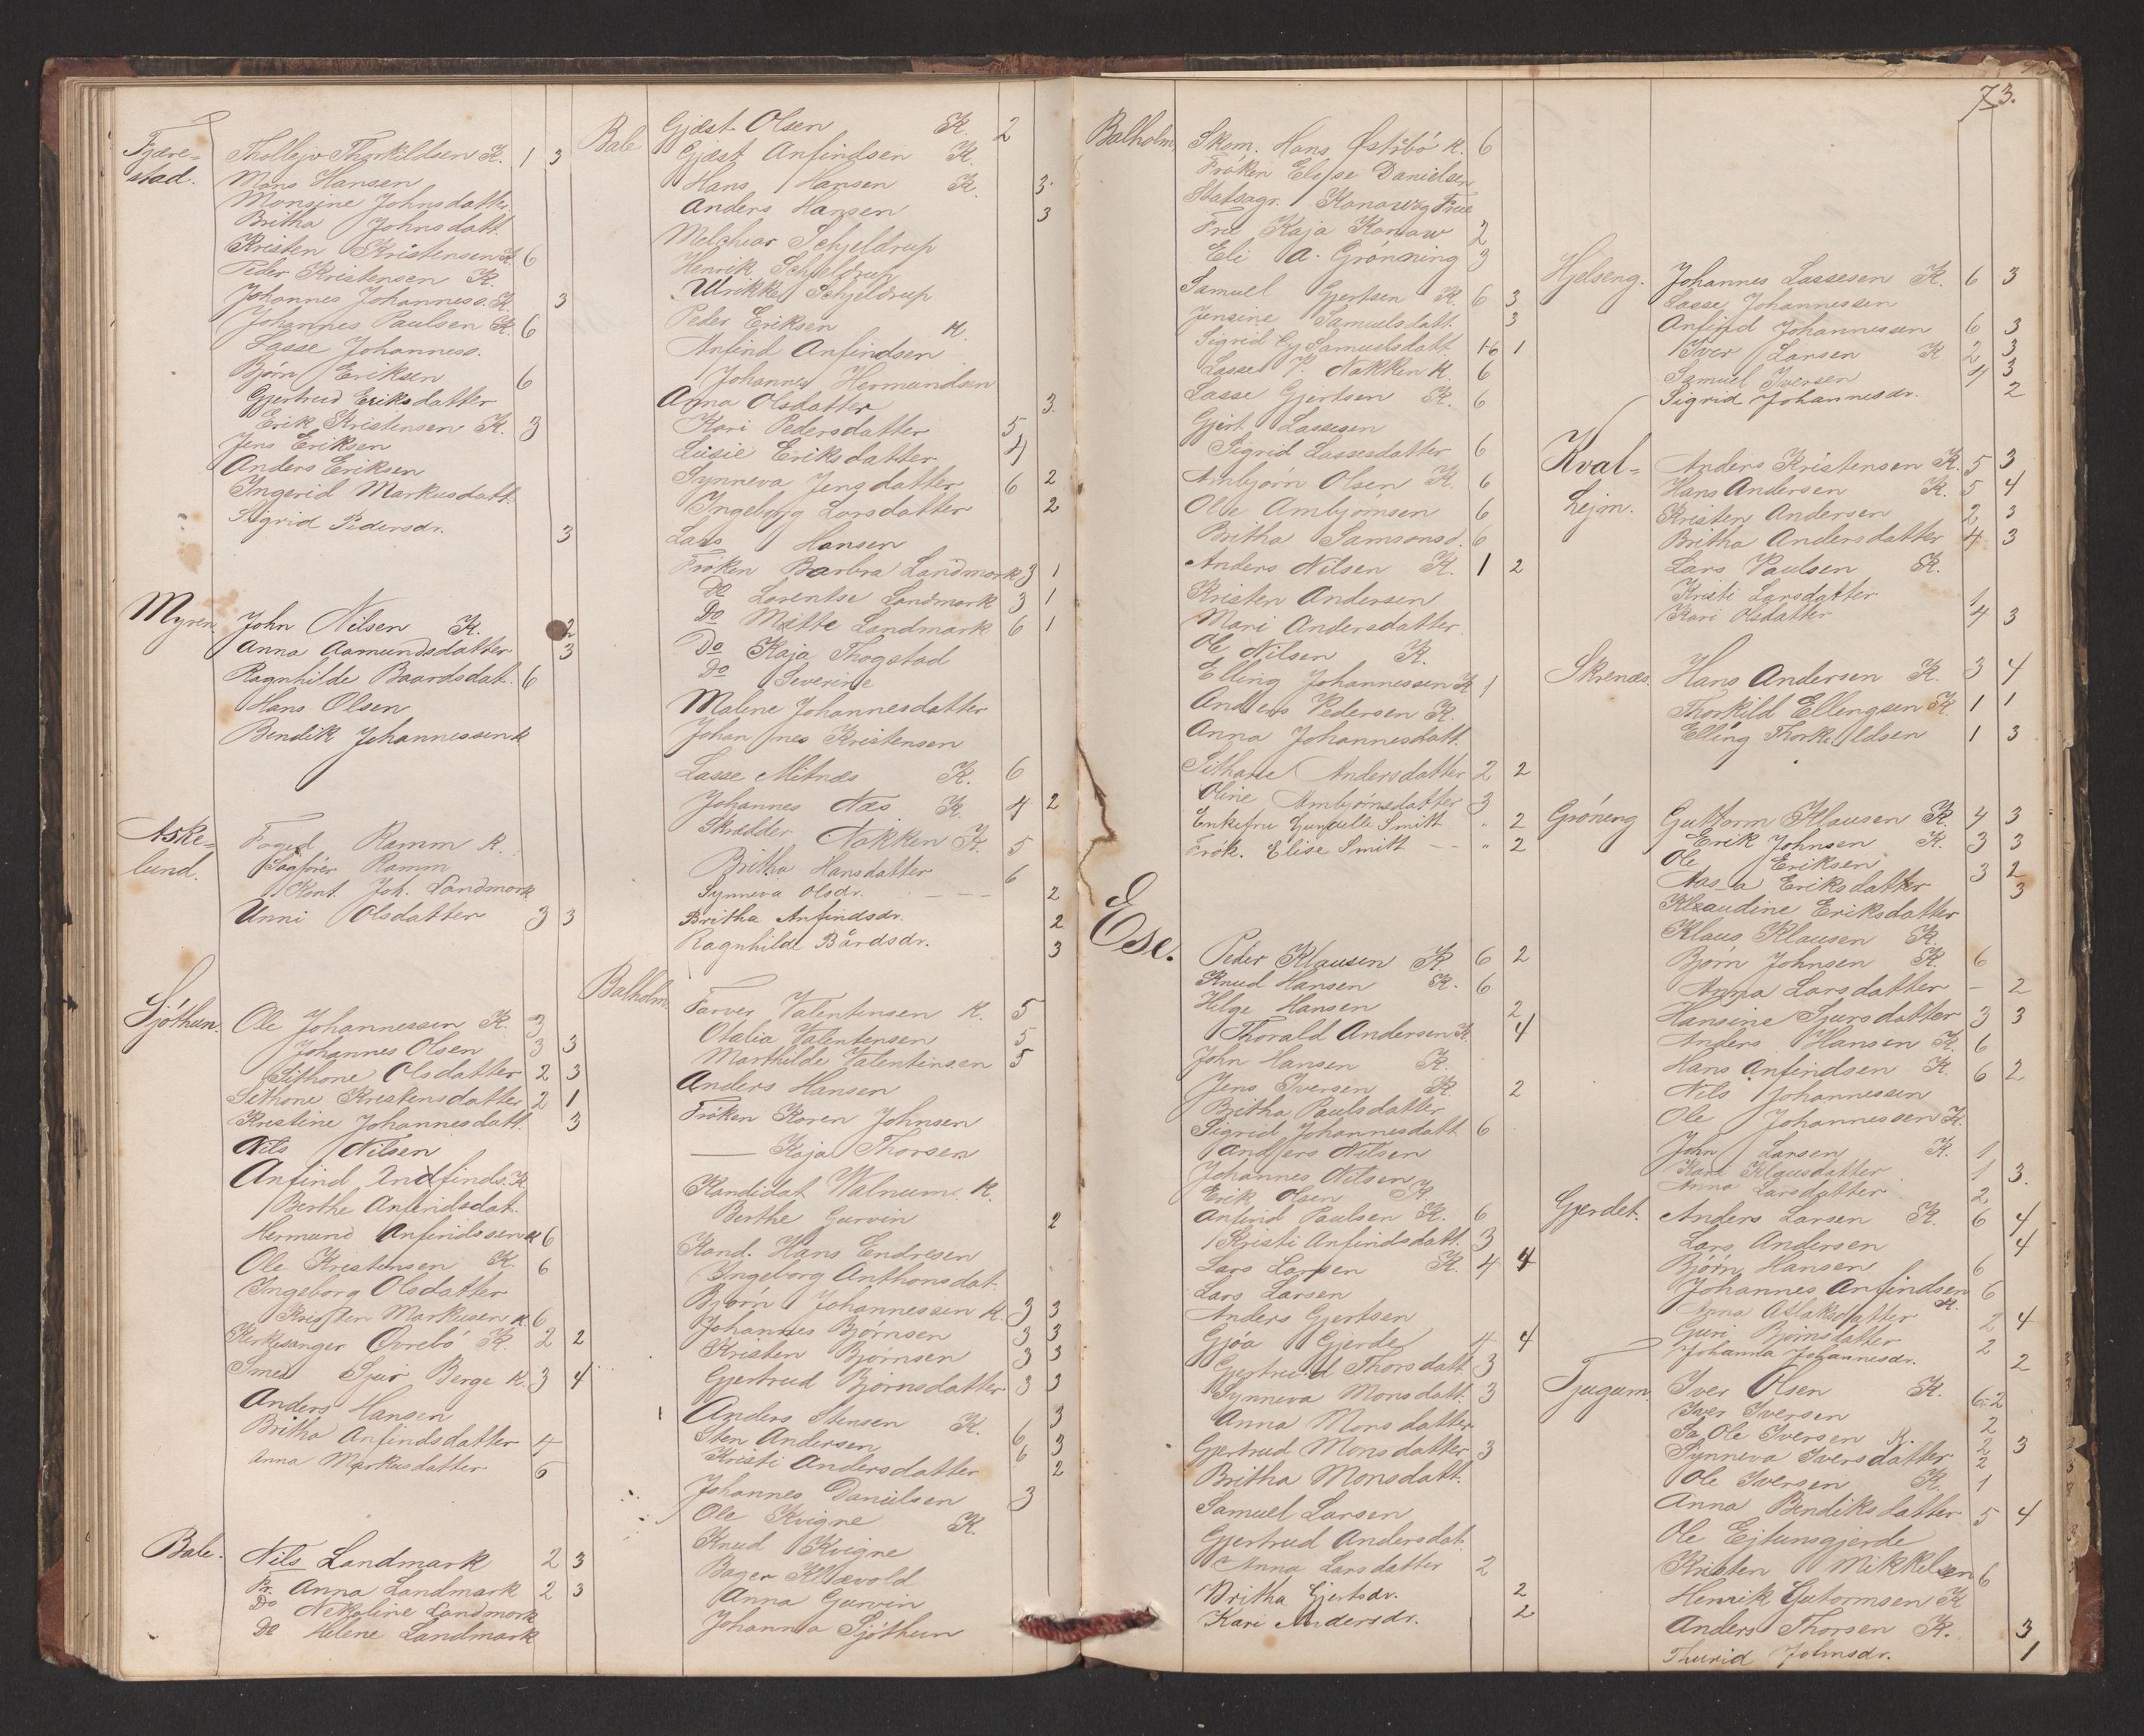 73.
Fjære- Thollejv Thorkildsen K. 1 3
stad. Mons Hansen
Monsine Johnsdatter
Britha Johnsdatt.
Kristen Kristensen K. 6
Peder Kristensen K.
Johannes Johanness. K. 3
Johannes Paulsen K. 6
Lasse Johanness.
Bjørn Eriksen 6
Gjertrud Eriksdatter
Erik Kristensen K. 3
Jens Eriksen
Anders Eriksen
Ingerid Markusdatt.
Sigrid Pedersdr. 3
Myren John Nilsen K. 2
Anna Aamundsdatter 3
Ragnhilde Baardsdat. 6
Hans Olsen
Bendik Johannessen K
Aske- Foged Ramm K.
lund. Sagfører Ramm
Kont. Joh. Landmark
Unni Olsdatter 3 3
Sjøthun. Ole Johannessen K. 3
Johannes Olsen 3 3
Sithone Olsdatter 2 3
Sithone Kristensdatter 2 1
Kristine Johannesdatt. 3
Nils Nilsen
Anfind Indfinds. K
Berthe Anfindsdat.
Hermund Anfindssen K 6
Ole Kristensen K. 6
Ingeborg Olsdatter
Kristen Markusen K. 6
Kirkesanger Øvrebö K. 2 2
Smed Sjur Berge K. 3 4
Anders Hansen
Britha Anfindsdatter 4
Anna Markusdatter 6
Bale. Nils Landmark 2 3
Fr. Anna Landmark 2 3
Do Nekoline Landmark
Do Helene Landmark
Bale Gjæst Olsen K. 2
Gjæst Anfindsen K.
Hans Hansen K. 3
Anders Hansen 3
Melchior Schjeldrup
Henrik Schjeldrup
Ulrikke Schjeldrup
Peder Eriksen K
Anfind Anfindsen
Johannes Hermundsen
Anna Olsdatter 3.
Kari Pedersdatter 5
Lüsie Eriksdatter 4
Synneva Jensdatter 6 2
Ingeborg Larsdatter 2
Lars Hansen
Fröken Barbra Landmark 3 1
Do Lorentse Landmark 3 1
Do Mette Landmark 6 1
Do Kaja Thogstad
Do Severine
Malene Johannesdatter
Johannes Kristensen
Lasse Mitnæs K. 6
Johannes Næs K. 4 2
Skrædder Nakken K. 5
Britha Hansdatter 6
Synneva Olsdr. — — 2
Britha Anfindsdr. 2
Ragnhilde Bårdsdr. 3
Balholm. Farver Valentinsen K. 5
Otalia Valentensen 5
Marthilde Valentinsen 5
Anders Hansen
Fröken Karen Johnsen
— Kaja Thorsen
Kandidat Walnum. K.
Berthe Gurvin 2
Kand. Hans Endresen
Ingeborg Anthonsdat.
Bjørn Johannessen K. 3 3
Johannes Bjørnsen 3 3
Kristen Bjørnsen 3 3
Gjertrud Bjørnsdatter 3 3
Anders Stensen K. 3
Sten Andersen 6 3
Kristi Andersdatter 6 2
Johannes Danielsen 3
Ole Kvigne K.
Knud Kvigne
Bager Klævold
Anna Gurvin
Johanna Sjöthun
Balholm. Skom. Hans Östrbö K. 6
Fröken Elisse Danielsen
Statsagr. Konow og Frue
Frü Kaja Konow 2
Eli A. Grönning 3
Samuel Gjertsen K. 6 3
Jensine Samuelsdatt. 3
Sigrid Samuelsdatt. 6 1
Lasse P. Nakken K. 6
Lasse Gjertsen K. 6
Gjert Lassesen
Sigrid Lassesdatter 6
Ambjørn Olsen K. 6
Ole Ambjørnsen 6
Britha Samsonsd. 6
Anders Nilsen K. 1 2
Kristen Andersen
Mari Andersdatter
Ole Nilsen K.
Elling Johannessen K 1
Anders Pedersen K.
Anna Johannesdatt.
Sithane Andersdatter 2 2
Oline Ambjørnsdatter 3
Enkefru Smitt " 2
Frök. Elise Smitt - - " 2
Ese. Peder Klausen K. 6 2
Knud Hansen K. 6
Helge Hansen 2
Thorald Andersen K. 4
John Hansen K.
Jens Iversen K. 2
Britha Paulsdatter
Sigrid Johannesdatt 6
Anders Nilsen
Johannes Nilsen
Erik Olsen K.
Anfind Paulsen K. 6
Kristi Anfindsdatt. 3
Lars Larsen K. 4 4
Lars Larsen
Anders Gjertsen
Gjöa Gjerde 4 4
Gjertrud Thorsdatt 3
Synneva Monsdatt. 3
Anna Monsdatter
Gjertrud Monsdatter 3
Britha Monsdatt.
Samuel Larsen
Gjertrud Andersdat.
Anna Larsdatter 2
Britha Gjertsdr. 2
Kari Andersdr. 2
Hjelseng. Johannes Lassesen K. 6 3
Lasse Johannessen
Anfind Johannessen 6 3
Iver Larsen K 2 3
Samuel Iversen 4 3
Sigrid Johannesdr. 2
Kval- Anders Kristensen K. 5 3
Hans Andersen K. 5 4
Lejm. Kristen Andersen 2 3
Britha Andersdatter 4 3
Lars Paulsen K.
Kristi Larsdatter 1
Kari Olsdatter 4 3
Skrenæs. Hans Andersen K. 3 4
Thorkild Ellengsen K. 1 1
Elling Thorkildsen 1 3
Gröning Guttorm Klausen K. 4 3
Erik Johnsen K. 3 3
Ole Eriksen 3 2
Aasa Eriksdatter 3
Klaudine Eriksdatter
Klaus Klausen K.
Bjørn Johnsen K. 6
Anna Larsdatter - 2
Hansine Sjursdatter 3 3
Anders Hansen K. 6
Hans Anfindsen K. 6 2
Nils Johannessen
Ole Johannessen K.
John Larsen K. 1
Kari Klausdatter 1 3.
Anna Larsdatter 2
Gjerdet. Anders Larsen K. 6 4
Lars Andersen 4
Bjørn Hansen 6
Johannes Anfindsen K. 6
Anna Aslaksdatter 2 4
Guri Bjørnsdatter 2
Johanna Johannesdr. 2
Tjugum Iver Olsen K. 6-2
Iver Iversen 2
Ole Iversen K. 2 3
Synneva Iversdatter 2
Ole Iversen K. 1
Anna Bendiksdatter 5 4
Ole Eitunsgjerde
Kristen Mikkelsen 6
Henrik Gutormsen K
Anders Thorsen K. 3
Thurid Johnsdr. 1